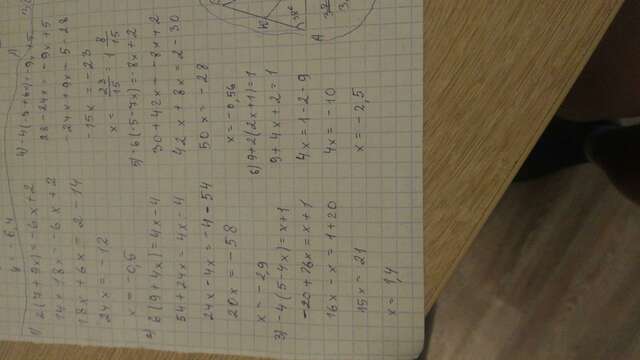 1) 2(7+9x)=-6x+2
14+18x=-6x+2
18x+6x=2-14
24x=-12
x=-0,5
2) 6(9+4x)=4x-4
54+24x=4x-4
24x-4x=-4-54
20x=-58
x=-2,9
3) -4(5-4x)=x+1
-20+16x=x+1
16x-x=1+20
15x=21
x=1,4
4) -4(-7+6x)=-9x+5
28-24x=-9x+5
-24x+9x=5-28
-15x=-23
x=23/15=1 8/15
5) -6(-5-7x)=-8x+2
30+42x=-8x+2
42x+8x=2-30
50x=-28
x=-0,56
6) 9+2(2x+1)=1
9+4x+2=1
4x=1-2-9
4x=-10
x=-2,5
A
38°